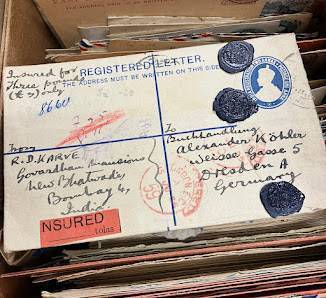 REGISTERED LETTER.
THE ADDRESS MUST BE WRITTEN ON THIS SIDE
Insured for
Three pounds
(£3) only
8660
From
R. D. KARVE
Govardhan Mansions
New Bhatwadi
Bombay 4,
India.
To
Buchhandlung
Alexander Köhler
Weisse Gasse 5
Dresden A
Germany
NSURED
tolas